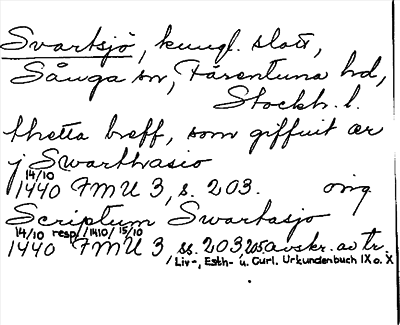 Svartsjö, kungl. slott,
Sånga sn, Färentuna hd,
Stockh. l.
thetta breff, som giffuit är
j Swarthasio
14/10
1440 FMU 3, s. 203. orig
Scriptum Swartasjo
14/10 resp. /1410/ 15/10
1440 FMU 3, ss. 203, 205 avskr. av tr.
/ Liv-, Esth- u. Curl. Urkundenbuch IX o. X